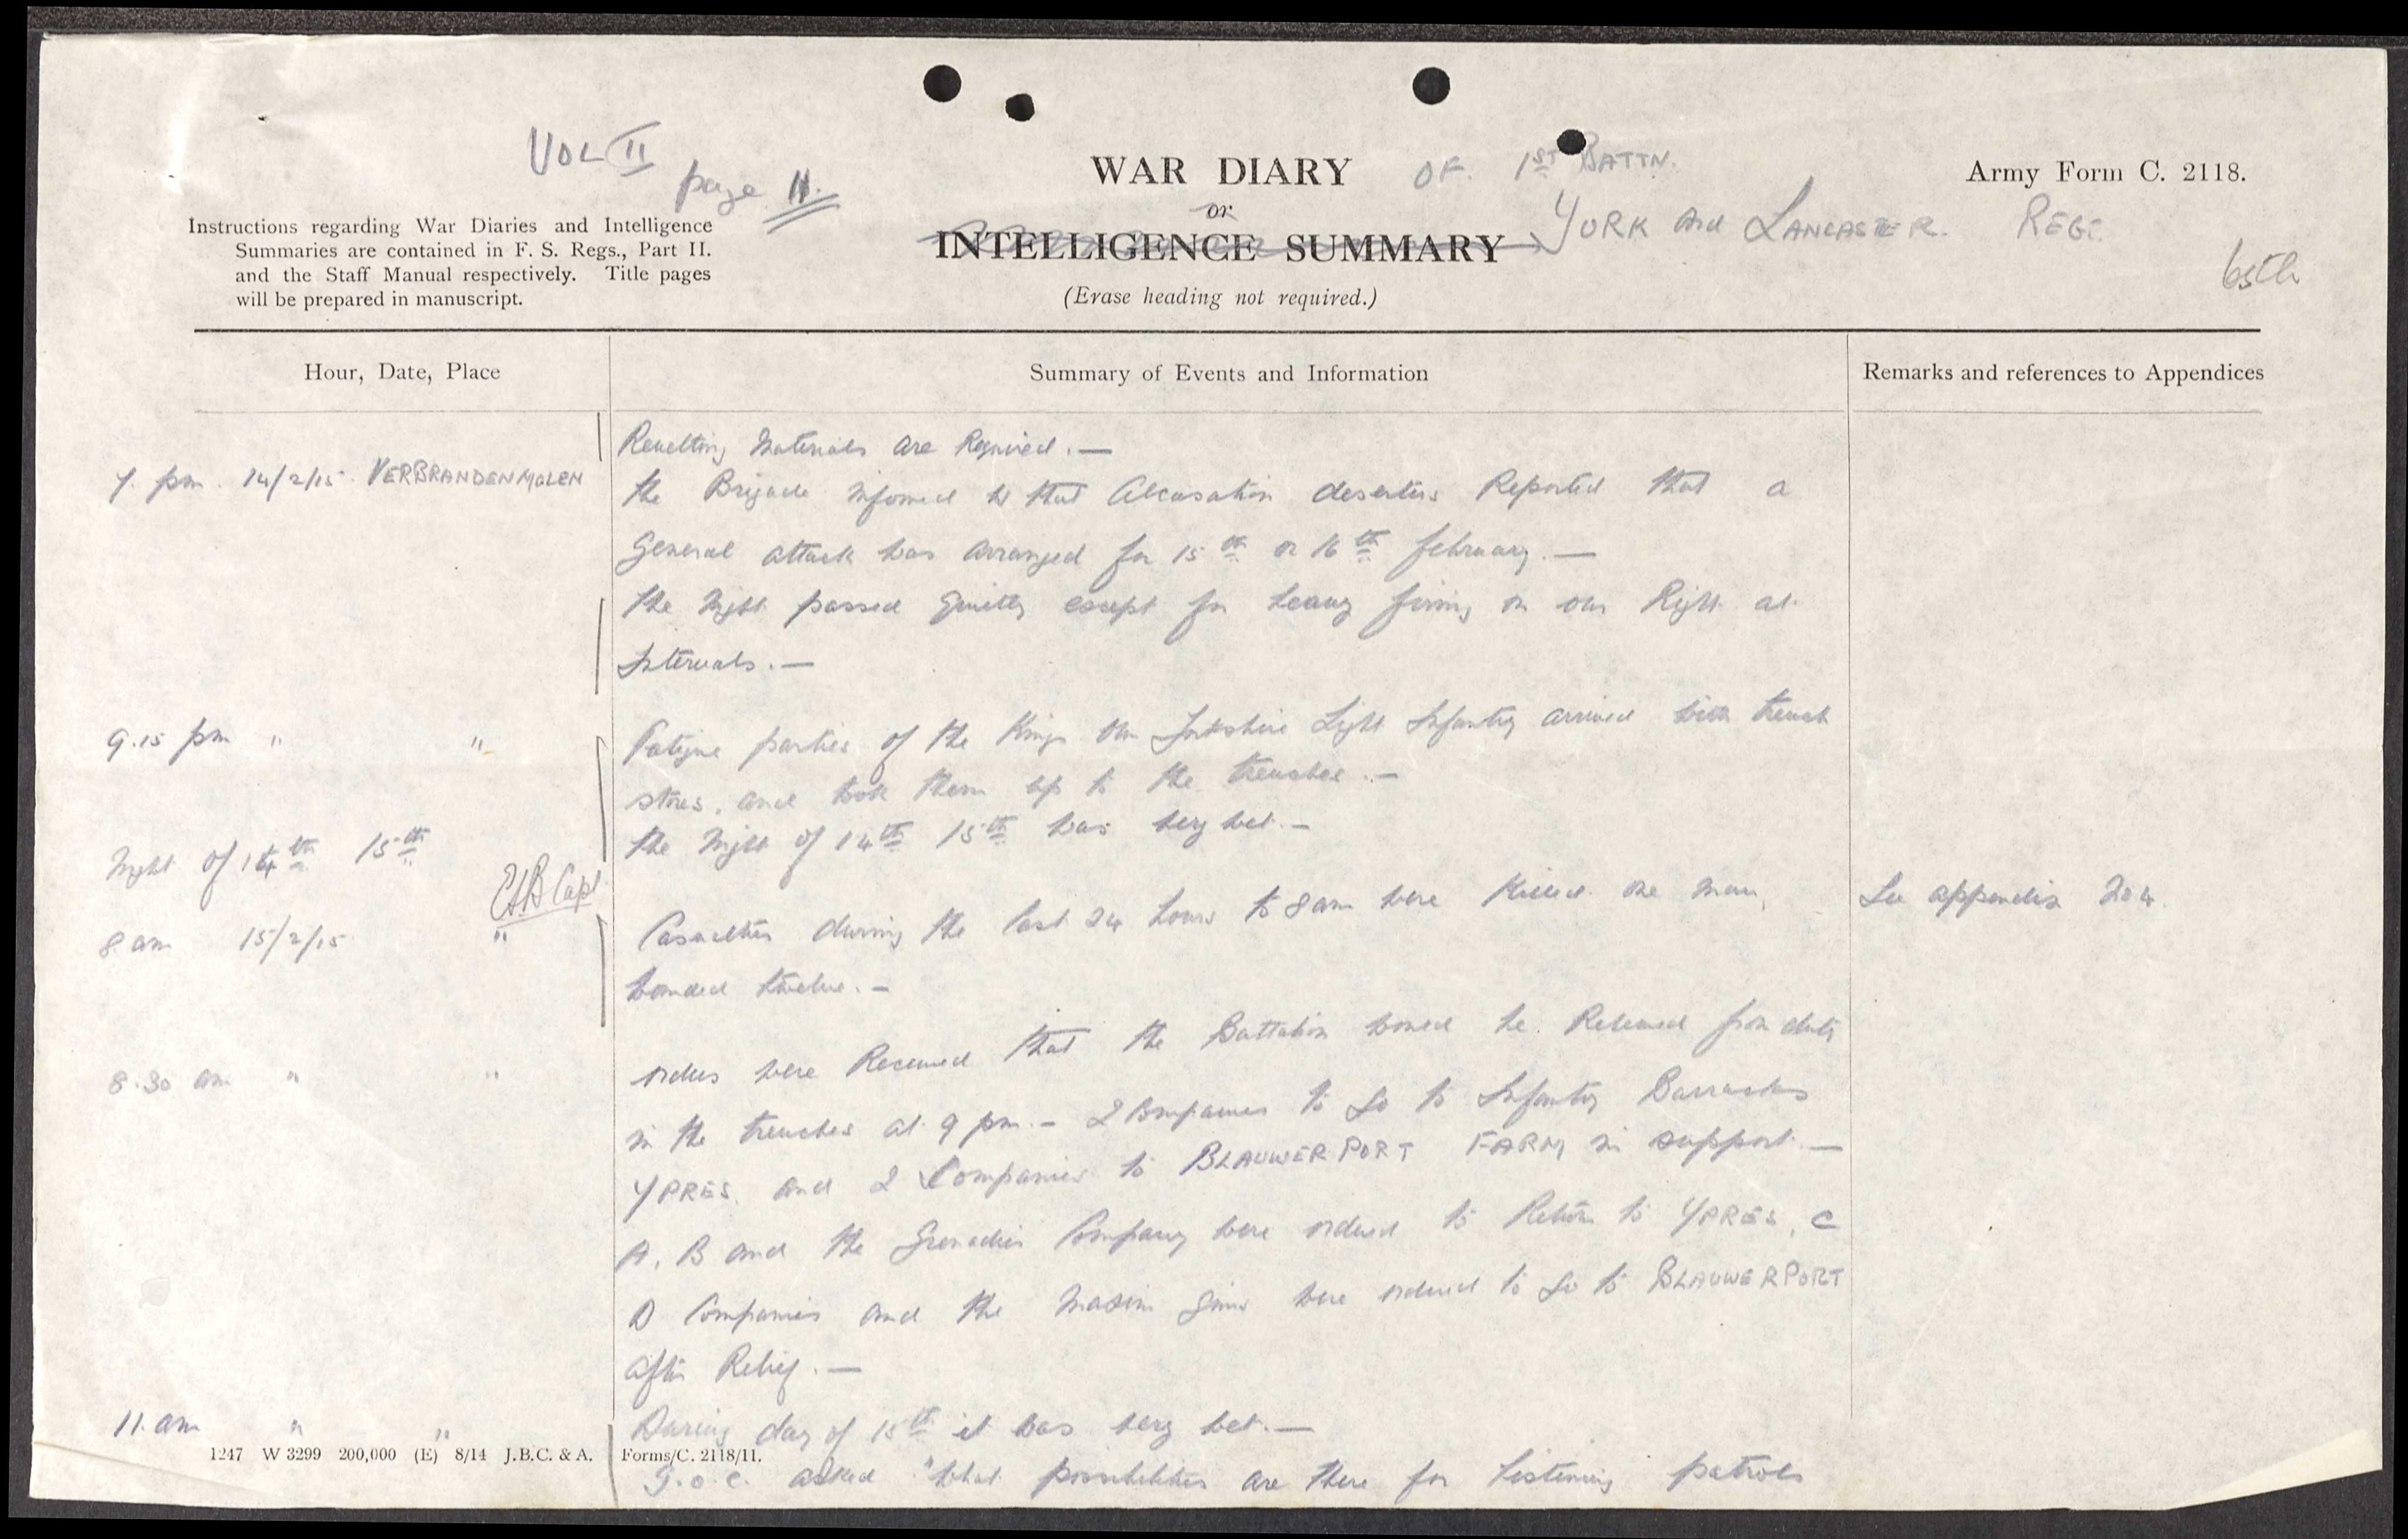 VOL II
page 11.
WAR DIARY OF. 1ST BATTN.
or
INTELLIGENCE SUMMARY YORK and LANCASTER. REGT.
65th
(Erase heading not required.)
Army Form C. 2118.
Instructions regarding War Diaries and Intelligence
Summaries are contained in F. S. Regs., Part II.
and the Staff Manual respectively. Title pages
will be prepared in manuscript.
Hour, Date, Place
Summary of Events and Information
Remarks and references to Appendices
Revetting Materials are Required. —
7. pm. 14/2/15. VERBRANDENMOLEN
the Brigade informed us that Alcasation deserters Reported that a
General attack was arranged for 15th or 16th february. —
the Night passed quietly except for heavy firing on our Right at
Intervals. —
9.15 pm " "
Fatigue parties of the Kings Own Yorkshire Light Infantry arrived with trench
stores. and took them up to the trenches. —
Night of 14th 15th
the Night of 14th 15th was very wet. —
Capt
8. am 15/2/15 "
Casualties during the last 24 hours to 8 am were Killed one man,
wounded twelve. —
See appendix 204.
8.30 am " "
orders were Received that the Battalion would be Relieved from duty
in the trenches at 9 pm. — 2 Companies to Go to Infantry Barracks
YPRES. and 2 Companies to BLAUWERPORT FARM in support. —
A, B and the Grenadier Company were ordered to Return to YPRES, C
D Companies and the Maxim Guns were ordered to Go to BLAUWERPORT
after Relief. —
11. am " "
During day of 15th it was very wet. —
1247 W 3299 200,000 (E) 8/14 J.B.C. & A. Forms/C. 2118/11.
G.O.C. asked "what possibilities are there for listening patrols